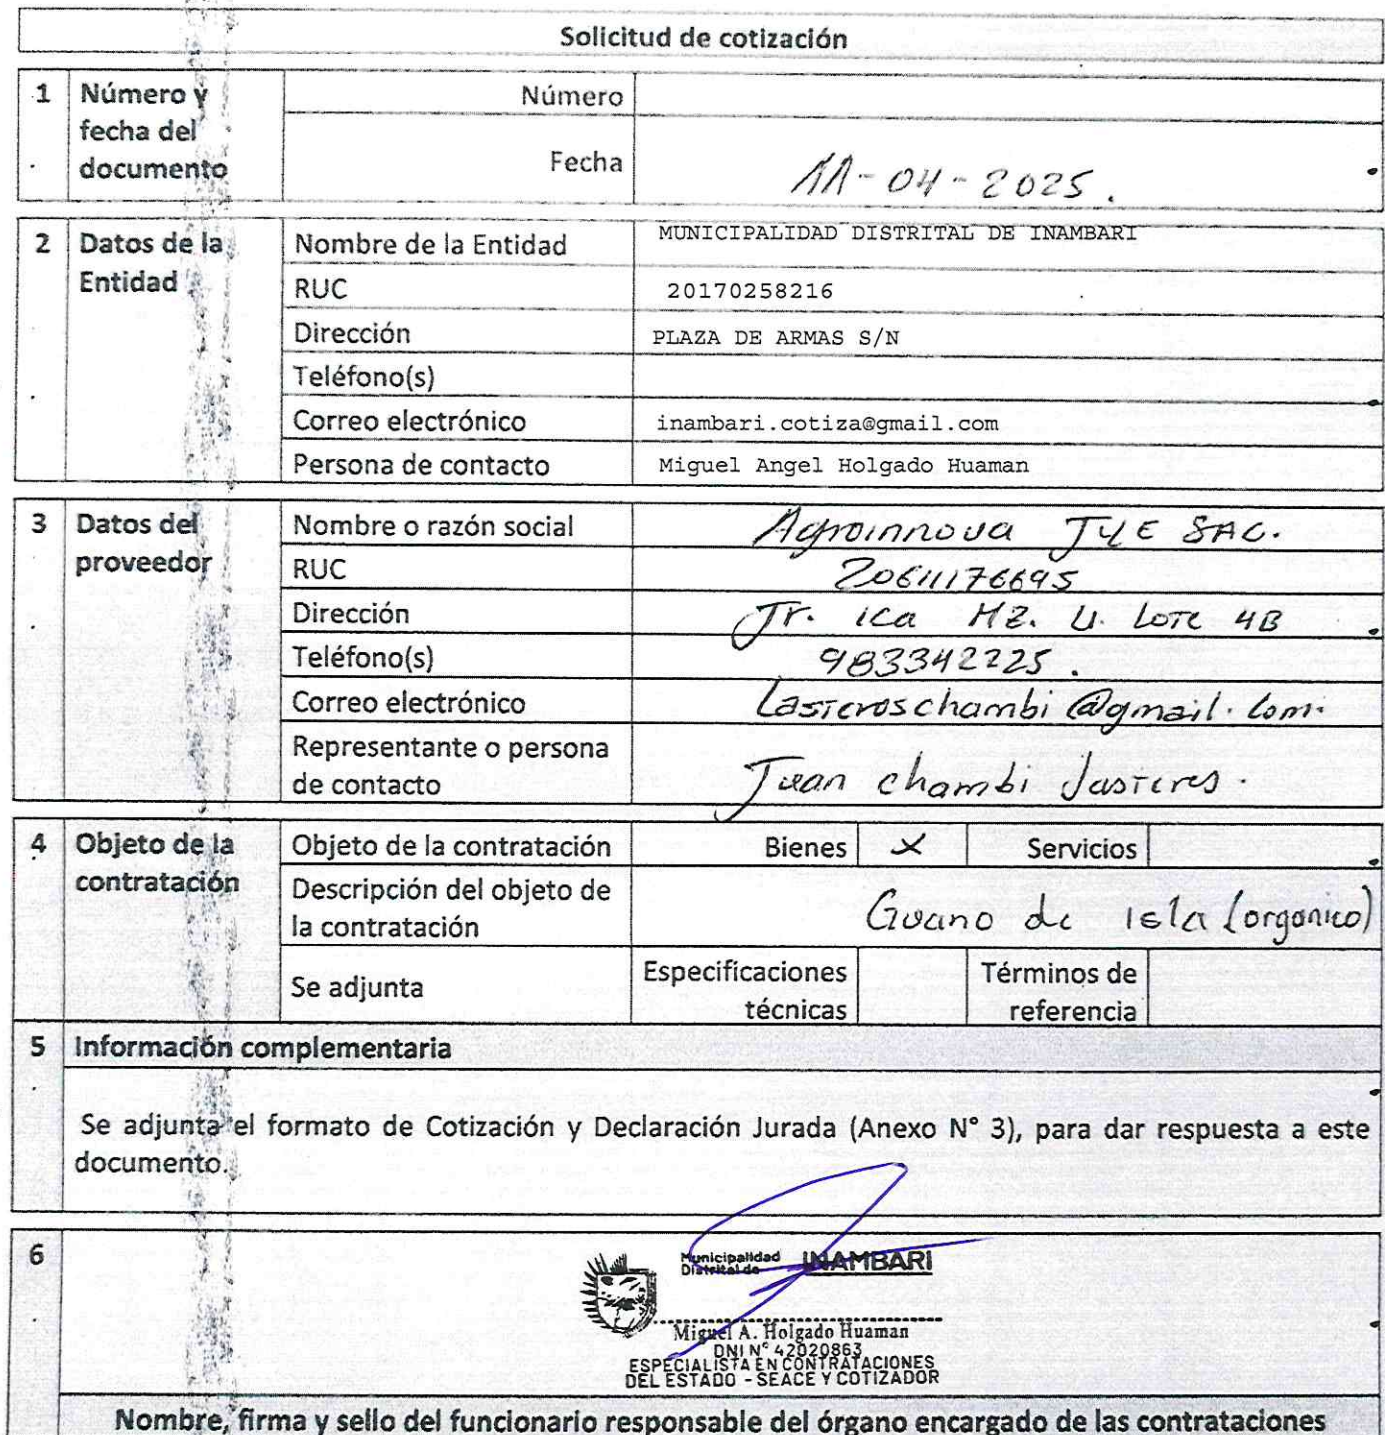 Solicitud de cotización
1 Número y fecha del documento
Número
Fecha 11-04-2025.
2 Datos de la Entidad
Nombre de la Entidad MUNICIPALIDAD DISTRITAL DE INAMBARI
RUC 20170258216
Dirección PLAZA DE ARMAS S/N
Teléfono(s)
Correo electrónico inambari.cotiza@gmail.com
Persona de contacto Miguel Angel Holgado Huaman
3 Datos del proveedor
Nombre o razón social Agroinnova JYE SAC.
RUC 20611176695
Dirección Jr. ica MZ. U. Lote 4B
Teléfono(s) 983342225.
Correo electrónico Lasteroschambi@gmail.com.
Representante o persona de contacto Juan chambi Lasteros.
4 Objeto de la contratación
Objeto de la contratación Bienes X Servicios
Descripción del objeto de la contratación Guano de isla (organico)
Se adjunta Especificaciones técnicas Términos de referencia
5 Información complementaria
Se adjunta el formato de Cotización y Declaración Jurada (Anexo N° 3), para dar respuesta a este
documento.
6
Municipalidad Distrital de INAMBARI
Miguel A. Holgado Huaman
DNI N° 42020863
ESPECIALISTA EN CONTRATACIONES
DEL ESTADO - SEACE Y COTIZADOR
Nombre, firma y sello del funcionario responsable del órgano encargado de las contrataciones